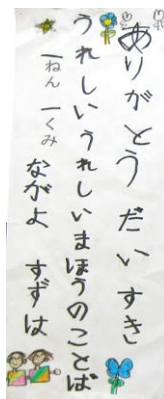 ありがとう だいすき
うれしいうれしいまほうのことば
一ねん 一くみ
ながよ すずは